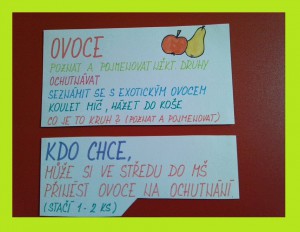 OVOCE
POZNAT A POJMENOVAT NĚKT. DRUHY
OCHUTNÁVAT
SEZNÁMIT SE S EXOTICKÝM OVOCEM
KOULET MÍČ, HÁZET DO KOŠE
CO JE TO KRUH (POZNAT A POJMENOVAT)
KDO CHCE,
MŮŽE SI VE STŘEDU DO MŠ
PŘINÉST OVOCE NA OCHUTNÁNÍ.
(STAČÍ 1-2 KS)